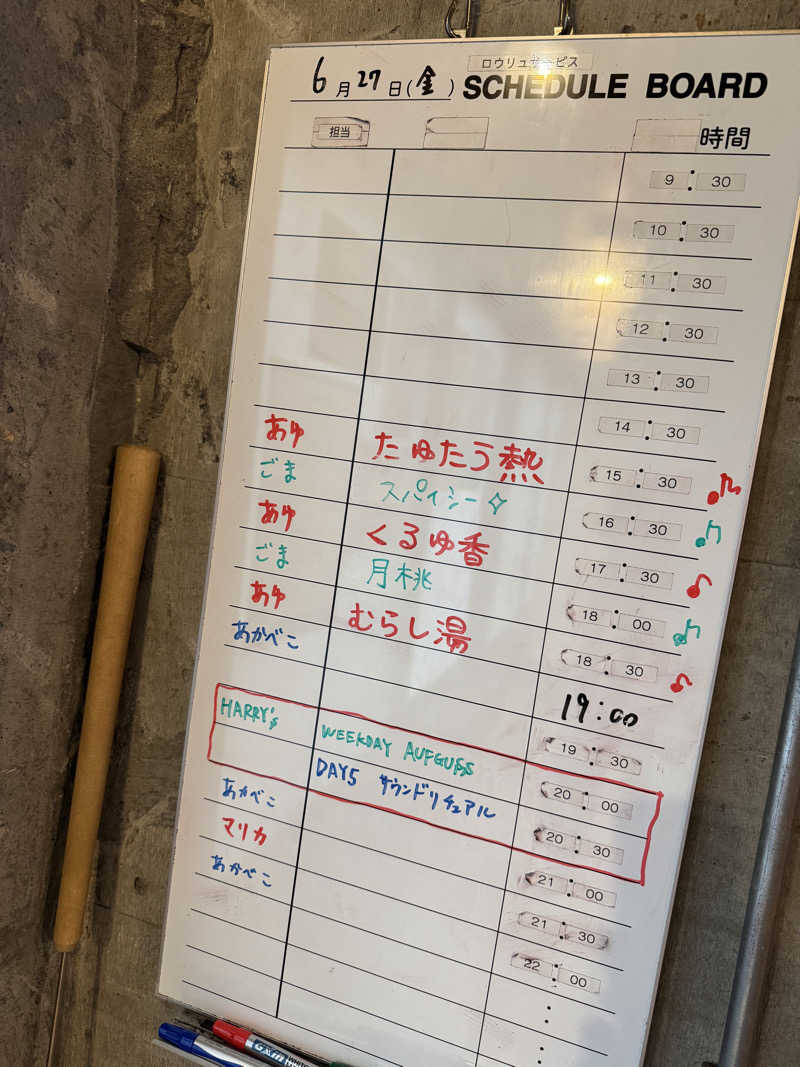 6月27日(金) ロウリュサービス SCHEDULE BOARD
担当 時間
9:30
10:30
11:30
12:30
13:30
14:30
あゆ たゆたう熱 15:30
ごま スパイシー 16:30
あゆ くるゆ香 17:30
ごま 月桃 18:00
あゆ むらし湯 18:30
あかべこ 19:00
19:30
HARRY's WEEKDAY AUFGUSS 20:00
DAY5 サウンドリチュアル 20:30
あかべこ 21:00
マリカ 21:30
あかべこ 22:00